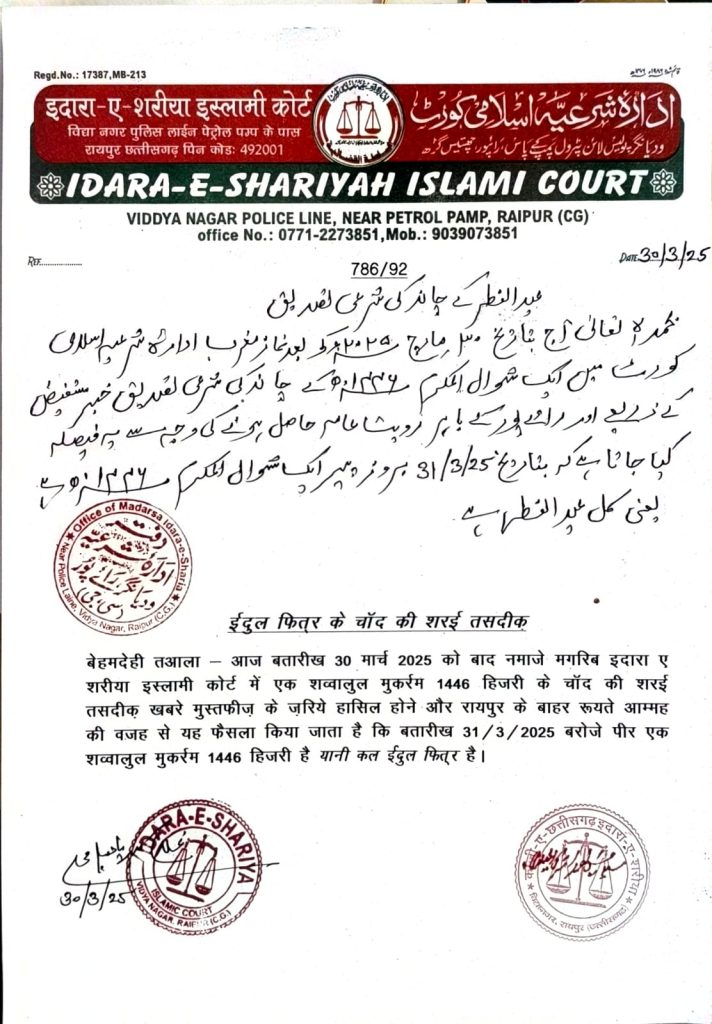 Regd.No.: 17387,MB-213
इदारा-ए-शरीया इस्लामी कोर्ट
ادارہ شرعیہ اسلامی کورٹ
विद्या नगर पुलिस लाईन पेट्रोल पम्प के पास
रायपुर छत्तीसगढ़ पिन कोडः 492001
IDARA-E-SHARIYAH ISLAMI COURT
VIDDYA NAGAR POLICE LINE, NEAR PETROL PAMP, RAIPUR (CG)
office No.: 0771-2273851,Mob.: 9039073851
REF..................
DATE 30/3/25
786/92
عید الفطر کے چاند کی شرعی تصدیق
بحمدہ تعالیٰ آج بتاریخ ۳۰ مارچ ۲۰۲۵ء کو بعد نماز مغرب ادارہ شرعیہ اسلامی
کورٹ میں ایک شوال المکرم ۱۴۴۶ھ کے چاند کی شرعی تصدیق خبر مستفیض
کے ذریعے اور رائے پور کے باہر رویت عامہ حاصل ہونے کی وجہ سے یہ فیصلہ
کیا جاتا ہے کہ بتاریخ 31/3/25 بروز پیر ایک شوال المکرم ۱۴۴۶ھ ہے
یعنی کل عید الفطر ہے
Office of Madarsa Idara-e-Sharia
دفتر
ادارہ شرعیہ
ودیانگر رائے پور
(سی۔جی)
Near Police Laine, Vidya Nagar, Raipur (C.G.)
ईदुल फित्र के चॉद की शरई तसदीक़
बेहमदेही तआला – आज बतारीख 30 मार्च 2025 को बाद नमाजे मगरिब इदारा ए
शरीया इस्लामी कोर्ट में एक शव्वालुल मुकर्रम 1446 हिजरी के चॉद की शरई
तसदीक़ खबरे मुस्तफीज़ के ज़रिये हासिल होने और रायपुर के बाहर रूयते आम्मह
की वजह से यह फैसला किया जाता है कि बतारीख 31/3/2025 बरोजे पीर एक
शव्वालुल मुकर्रम 1446 हिजरी है यानी कल ईदुल फित्र है।
IDARA-E-SHARIYA
ISLAMIC COURT
VIDYA NAGAR, RAIPUR (C.G.)
30/3/25
छत्तीसगढ़ इदारा-ए-शरीया
रायपुर (छत्तीसगढ़)